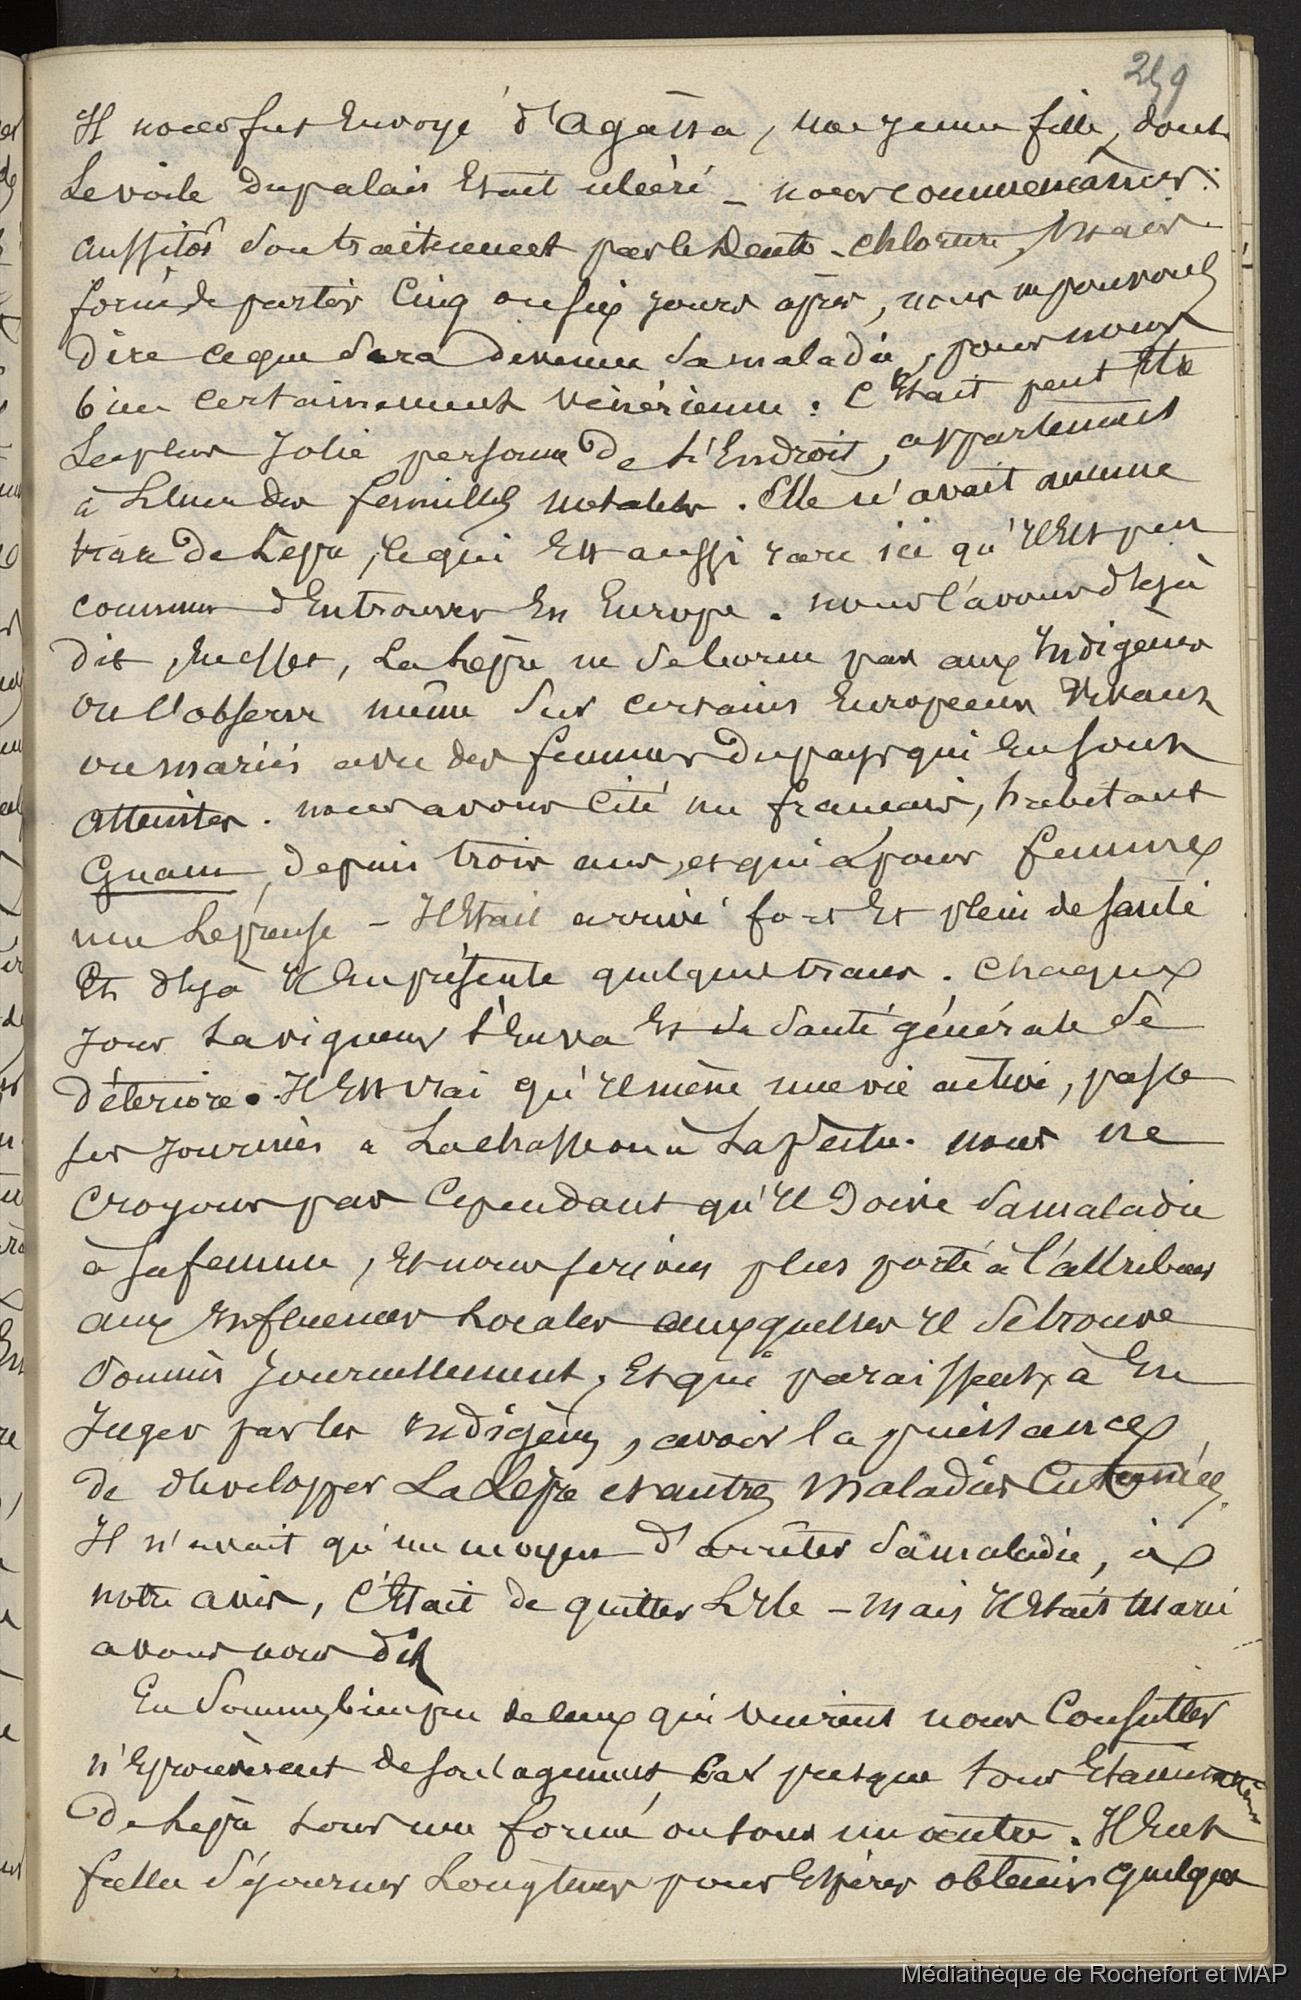 259
Il nous fut Envoyé d'Agâna, une jeune fille, dont
Le voile du palais Etait ulcéré _ nous commencâmes
aussitôt son traitement par le Deuto-chlorure, Mais
forcé de partir Cinq ou six jours après, nous ne pouvons
dire ce que Sera devenue Sa maladie, pour nous
bien certainement vénérienne : C'Etait peut Etre
La plus Jolie personne De L'Endroit, appartenant
à L'une des familles notables. Elle n'avait aucune
trace De Lèpre, ce qui Est aussi rare ici qu'il Est peu
commun d'En trouver En Europe. nous l'avons déjà
dit, En effet, La Lèpre ne Se borne pas aux Indigènes
on l'observe même Sur certains Européens Vivans
ou mariés avec des femmes Du pays qui En sont
Atteintes. nous avons Cité un francais, habitant
Guam, depuis trois ans, et qui a pour femme
une Lépreuse – Il Etait arrivé fort Et plein de santé
Et déjà Il En présente quelques traces. Chaque
jour La vigueur S'En va Et Sa Santé générale Se
Déteriore. Il Est vrai qu'il mène une vie active, passe
ses journées à La chasse ou à La Pêche. nous ne
Croyons pas Cependant qu'il Doive Sa maladie
à sa femme, Et nous serions plus porté à l'attribuer
aux Influences Locales auxquelles il Se trouve
Soumis Journellement, Et qui paraissent, à En
Juger par les Indigènes, avoir la puissance
de développer La Lèpre et autres Maladies Cutanées.
Il n'avait qu'un moyen D'arrêter Sa maladie, à
notre avis, C'Etait de quitter L'Ile – Mais Il Etait Marié
avons nous dit
En Somme, bien peu de ceux qui vinrent nous Consulter
n'Eprouvèrent de soulagement, Car presque tous Etaient atteins
De Lèpre sous une forme ou sous une autre. Il Eut
fallu Séjourner Longtems pour Espérer obtenir quelque
Médiathèque de Rochefort et MAP